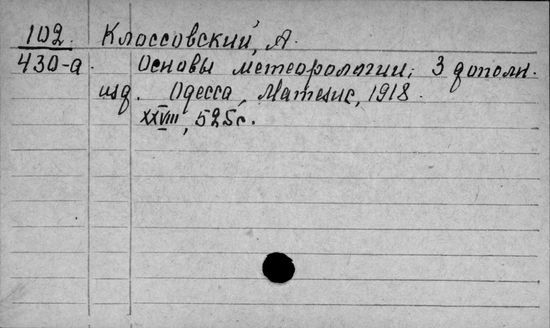 102. Клоссовский, А.
430-а. Основы метеорологии; 3 дополн.
изд. Одесса, Матезис, 1918.
XXVIII, 525с.